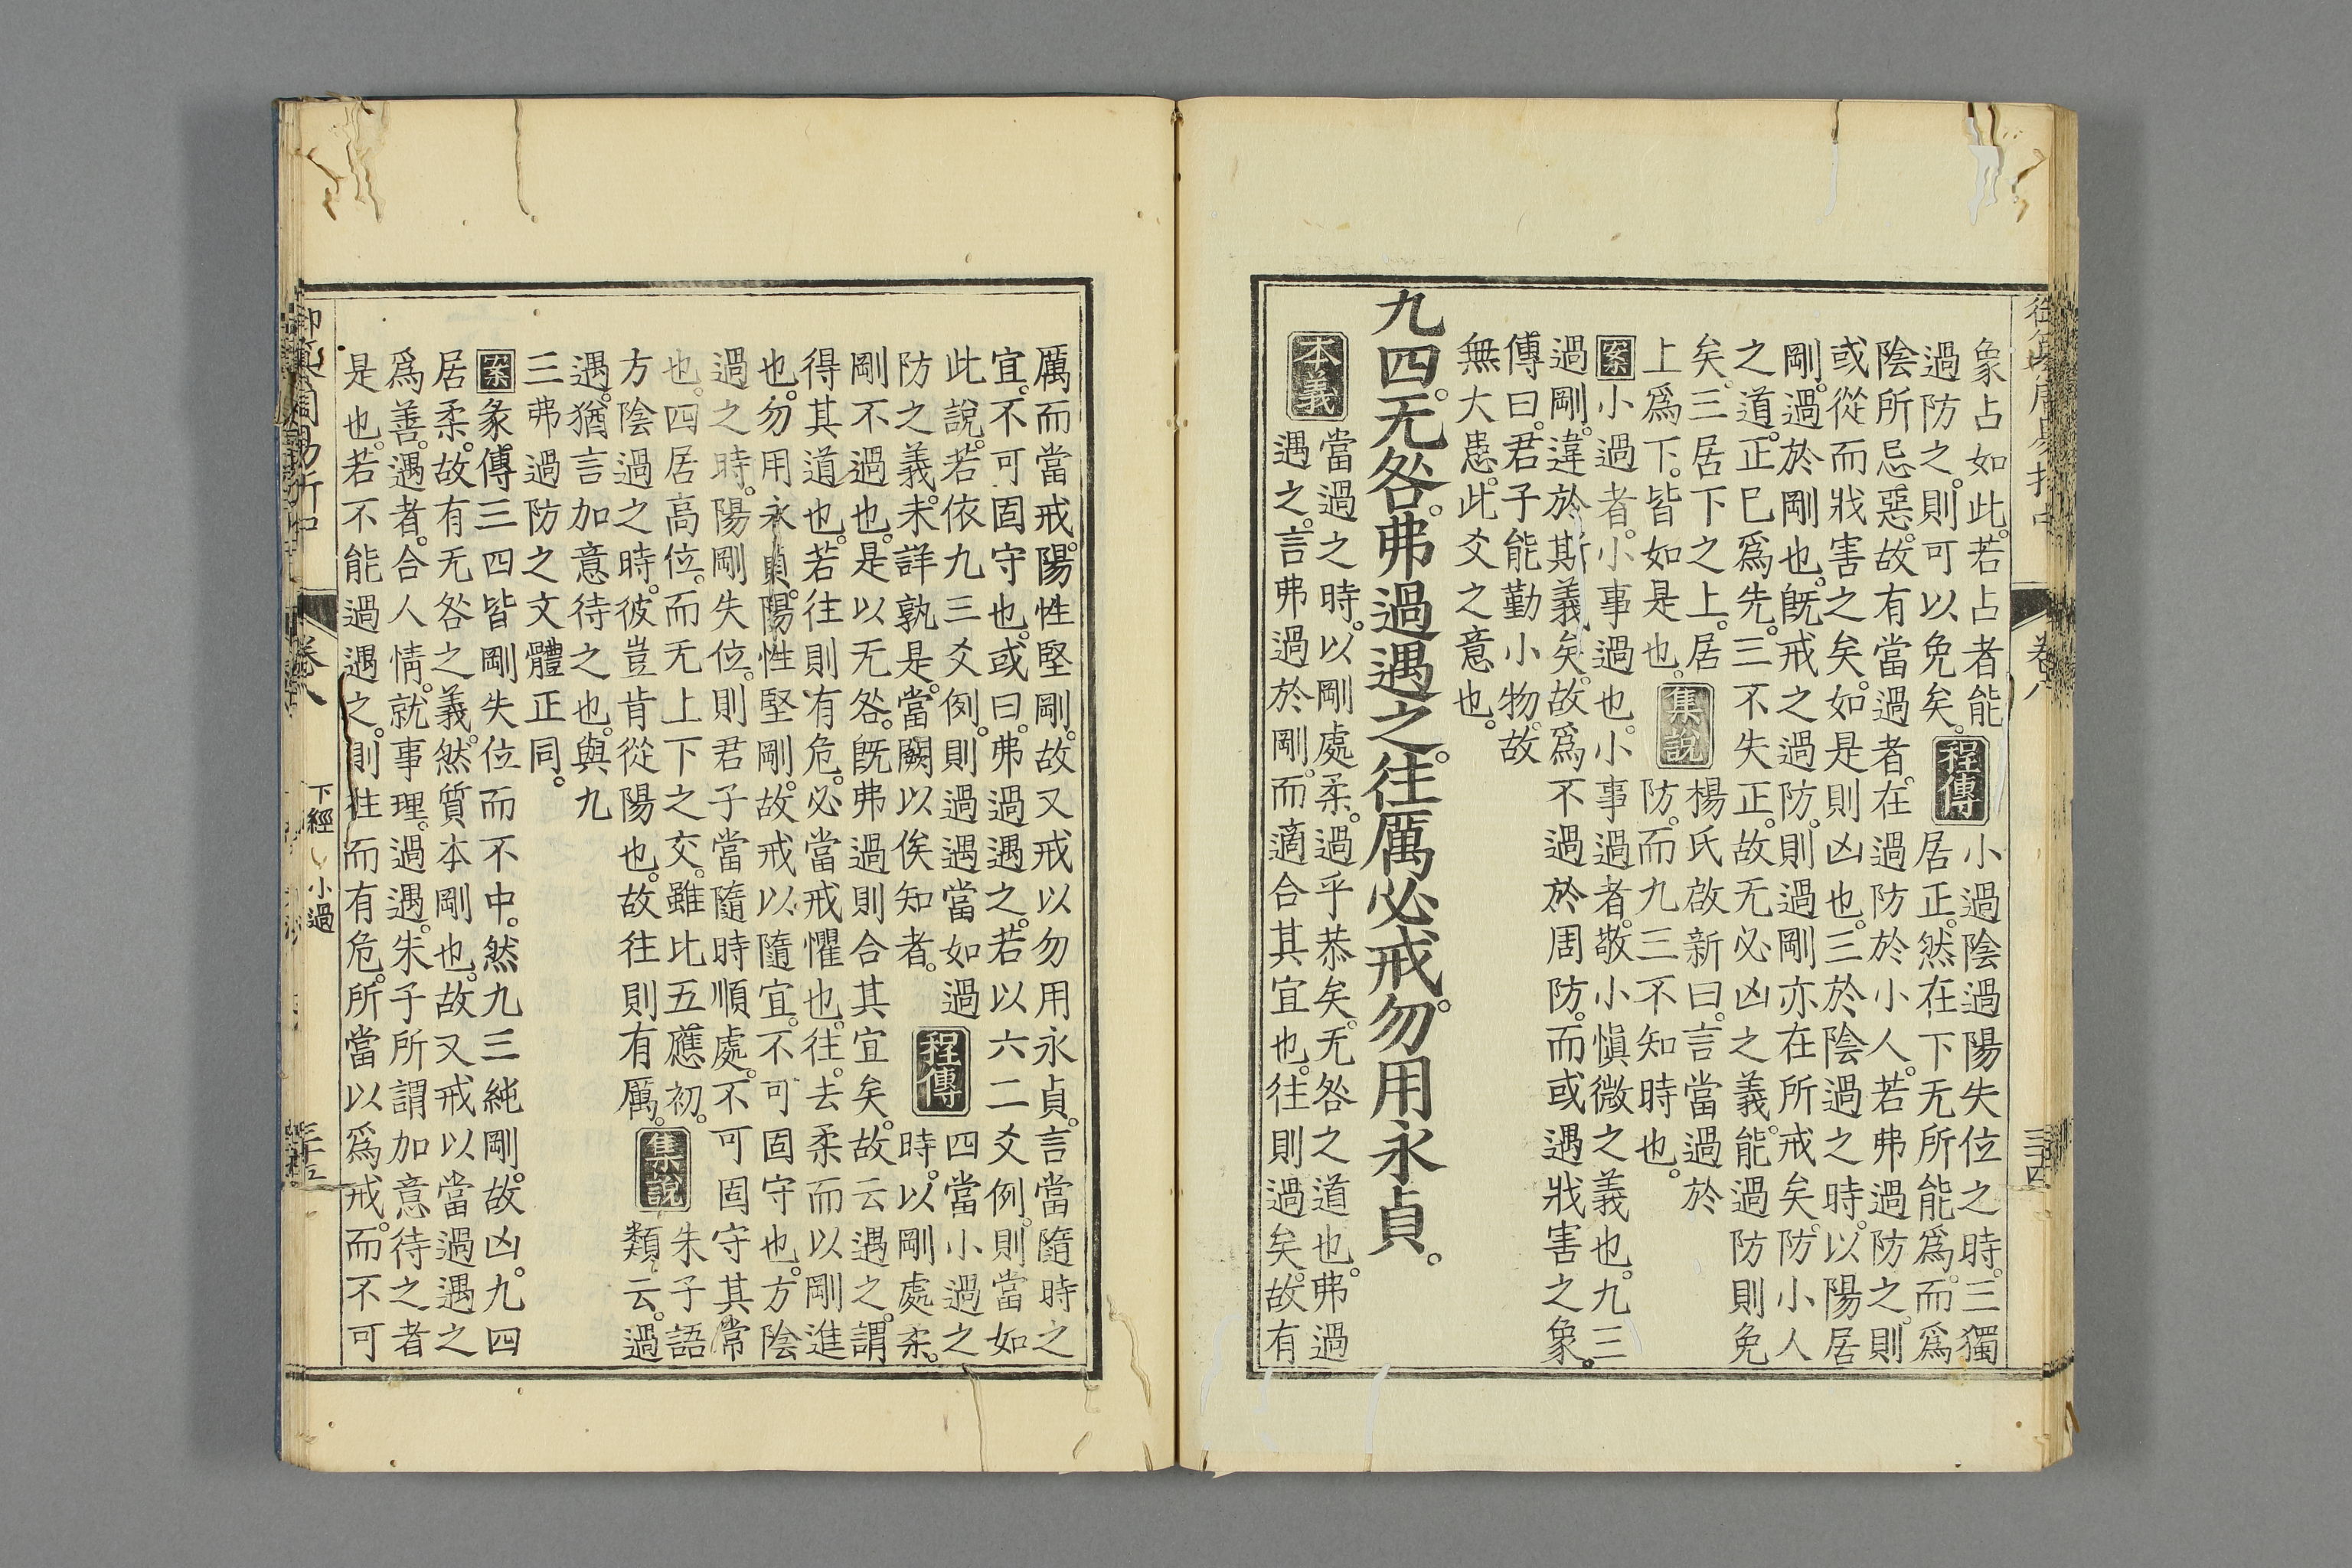 卷八
象占如此。若占者能
過防之。則可以免矣。
程傳
小過陰過陽失位之時。三獨
居正。然在下无所能爲。而爲
陰所忌惡。故有當過者。在過防於小人。若弗過防之。則
或從而戕害之矣。如是則凶也。三於陰過之時。以陽居
剛。過於剛也。既戒之過防。則過剛亦在所戒矣。防小人
之道。正己爲先。三不失正。故无必凶之義。能過防則免
矣。三居下之上。居
上爲下。皆如是也。
集說
楊氏啟新曰。言當過於
防。而九三不知時也。
案小過者。小事過也。小事過者。敬小愼微之義也。九三
過剛。違於斯義矣。故爲不過於周防。而或遇戕害之象。
傳曰。君子能勤小物。故
無大患。此爻之意也。
九四。无咎。弗過遇之。往厲必戒。勿用永貞。
本義
當過之時。以剛處柔。過乎恭矣。无咎之道也。弗過
遇之。言弗過於剛。而適合其宜也。往則過矣。故有
厲而當戒。陽性堅剛。故又戒以勿用永貞。言當隨時之
宜。不可固守也。或曰。弗過遇之。若以六二爻例。則當如
此說。若依九三爻例。則過遇當如過
防之義。未詳孰是。當闕以俟知者。
程傳
四當小過之
時。以剛處柔。
剛不過也。是以无咎。旣弗過則合其宜矣。故云遇之。謂
得其道也。若往則有危。必當戒懼也。往。去柔而以剛進
也。勿用永貞。陽性堅剛。故戒以隨宜。不可固守也。方陰
過之時。陽剛失位。則君子當隨時順處。不可固守其常
也。四居高位。而无上下之交。雖比五應初。
方陰過之時。彼豈肯從陽也。故往則有厲。
集說
朱子語
類云。過
遇。猶言加意待之也。與九
三弗過防之文體正同。
案彖傳三四皆剛失位而不中。然九三純剛。故凶。九四
居柔。故有无咎之義。然質本剛也。故又戒以當過遇之
爲善。遇者。合人情。就事理。過遇。朱子所謂加意待之者
是也。若不能過遇之。則往而有危。所當以爲戒。而不可
卷八
下經 小過